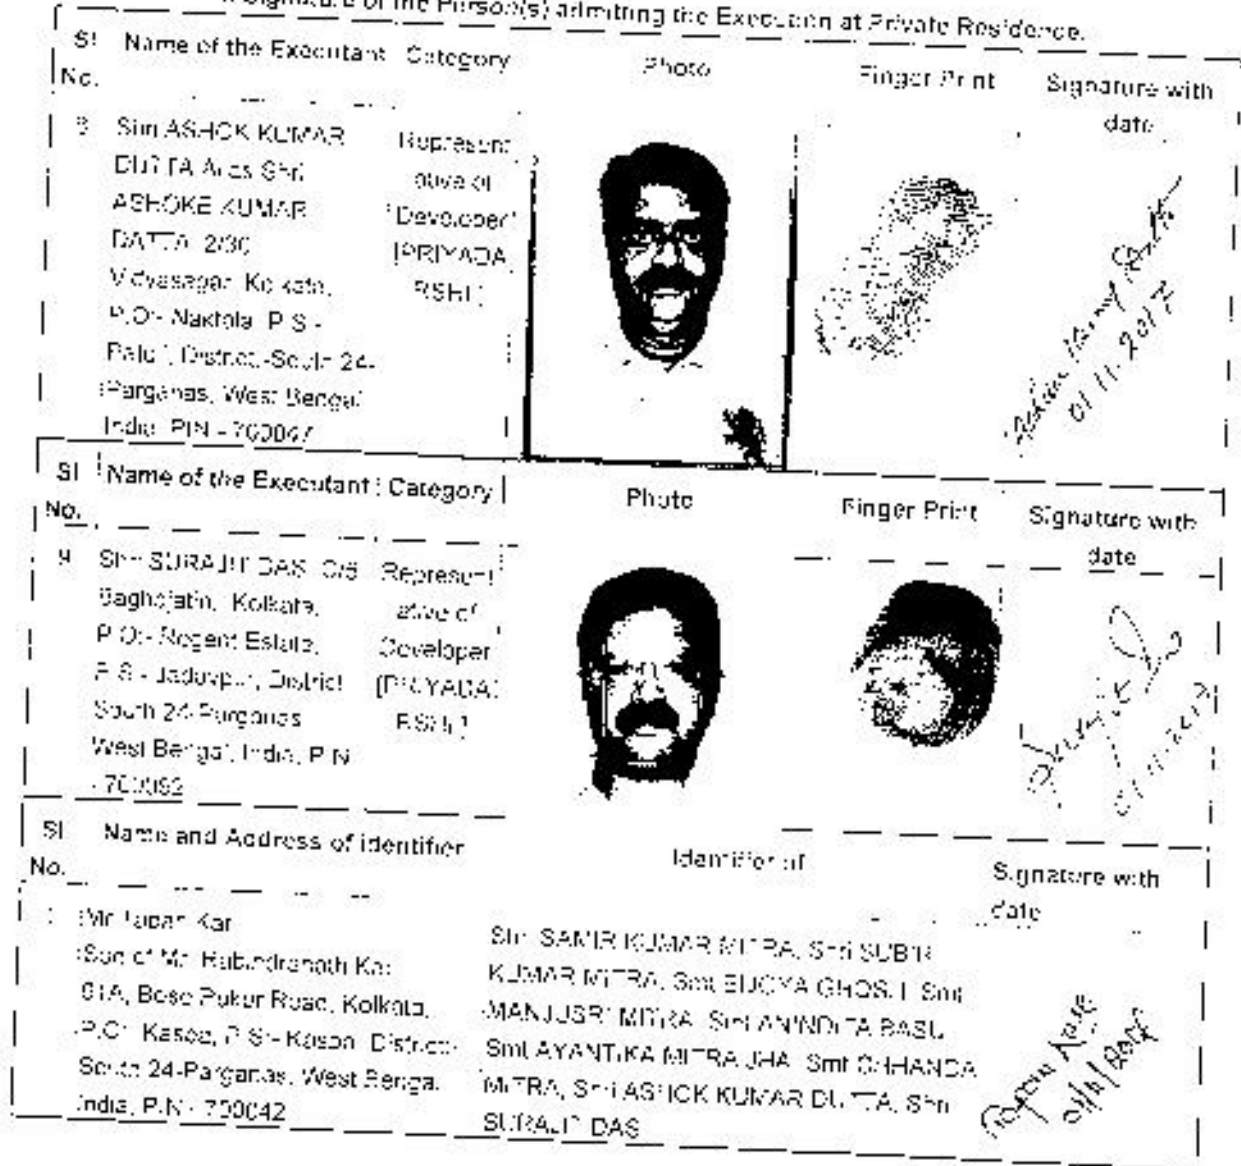 Signature of the Person(s) admitting the Execution at Private Residence.
Sl No. Name of the Executant Category Photo Finger Print Signature with date
8 Shri ASHOK KUMAR
DUTTA Alias Shri
ASHOKE KUMAR
DATTA 2/30
Vidyasagar, Kolkata,
P.O:- Naktala, P.S:-
District:-South 24-
Parganas, West Bengal,
India, PIN - 700047
Represent
ative of
Developer
[PRIYADA
RSHI]
01.11.2017
Sl No. Name of the Executant Category Photo Finger Print Signature with date
9 Shri SURAJIT DAS
Baghajatin, Kolkata,
P.O:- Regent Estate,
P.S:- Jadavpur, District:-
South 24-Parganas,
West Bengal, India, PIN
- 700092
Represent
ative of
Developer
[PRIYADA
RSHI]
01.11.2017
Sl No. Name and Address of identifier Identifier of Signature with date
1 Mr Tapan Kar
Son of Mr Rabindranath Kar
Bose Pukur Road, Kolkata,
P.O:- Kasba, P.S:- Kasba, District:-
South 24-Parganas, West Bengal,
India, PIN - 700042
Shri SAMIR KUMAR MITRA, Shri SUBIR
KUMAR MITRA, Smt BIJOYA GHOSH, Smt
MANJUSRI MITRA, Smt ANINDITA BASU,
Smt AYANTIKA MITRA JHA, Smt CHHANDA
MITRA, Shri ASHOK KUMAR DUTTA, Shri
SURAJIT DAS